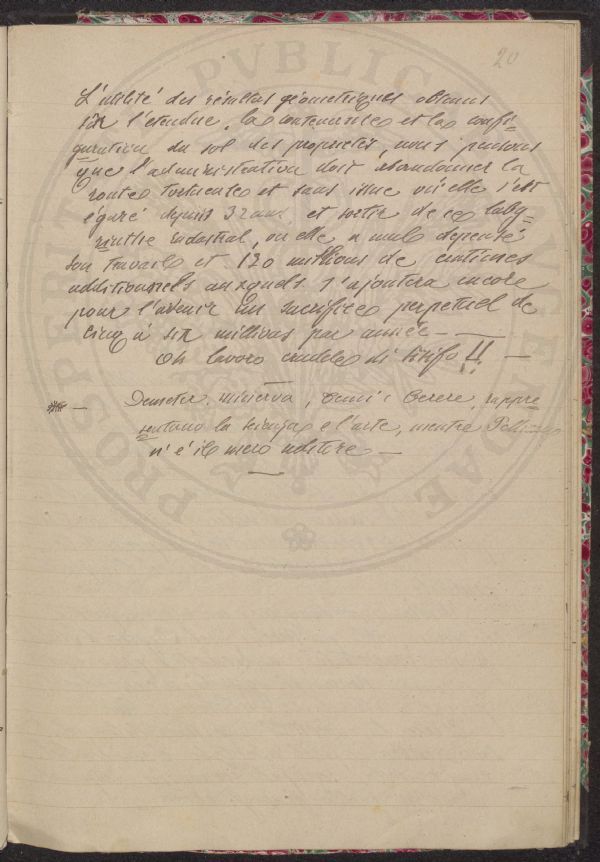 20
L'utilité des résultats géometriques obtenus
sur l'etendue, la contenance et la confi-
guration du sol des propriétés, nous pensons
que l'administration doit abandonner la
route tortueuse et sans issue où elle s'est
égaré depuis 32 ans et sortir de ce laby-
rinthe industrial, ou elle a mal depensé
son travail et 120 millions de centimes
additionnels auxquels s'ajoutera encore
pour l'avenir un sacrifice perpetuel de
cinq à six millions par année —
Oh lavoro crudele di Sisifo!! —
Demeter, Minerva, Cerere, rappre-
sentano la scienza e l'arte, mentre
n' é il mero —
PROSPERITATI PUBLICAE